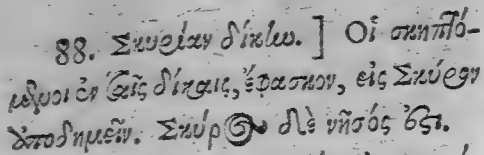 88. Σκυρίαν δίκην.] Οἱ σκηπτό-
μενοι ἐν ταῖς δίκαις, ἔφασκον, εἰς Σκύρον
ἀποδημεῖν. Σκύρος δὲ νῆσός ἐστι.